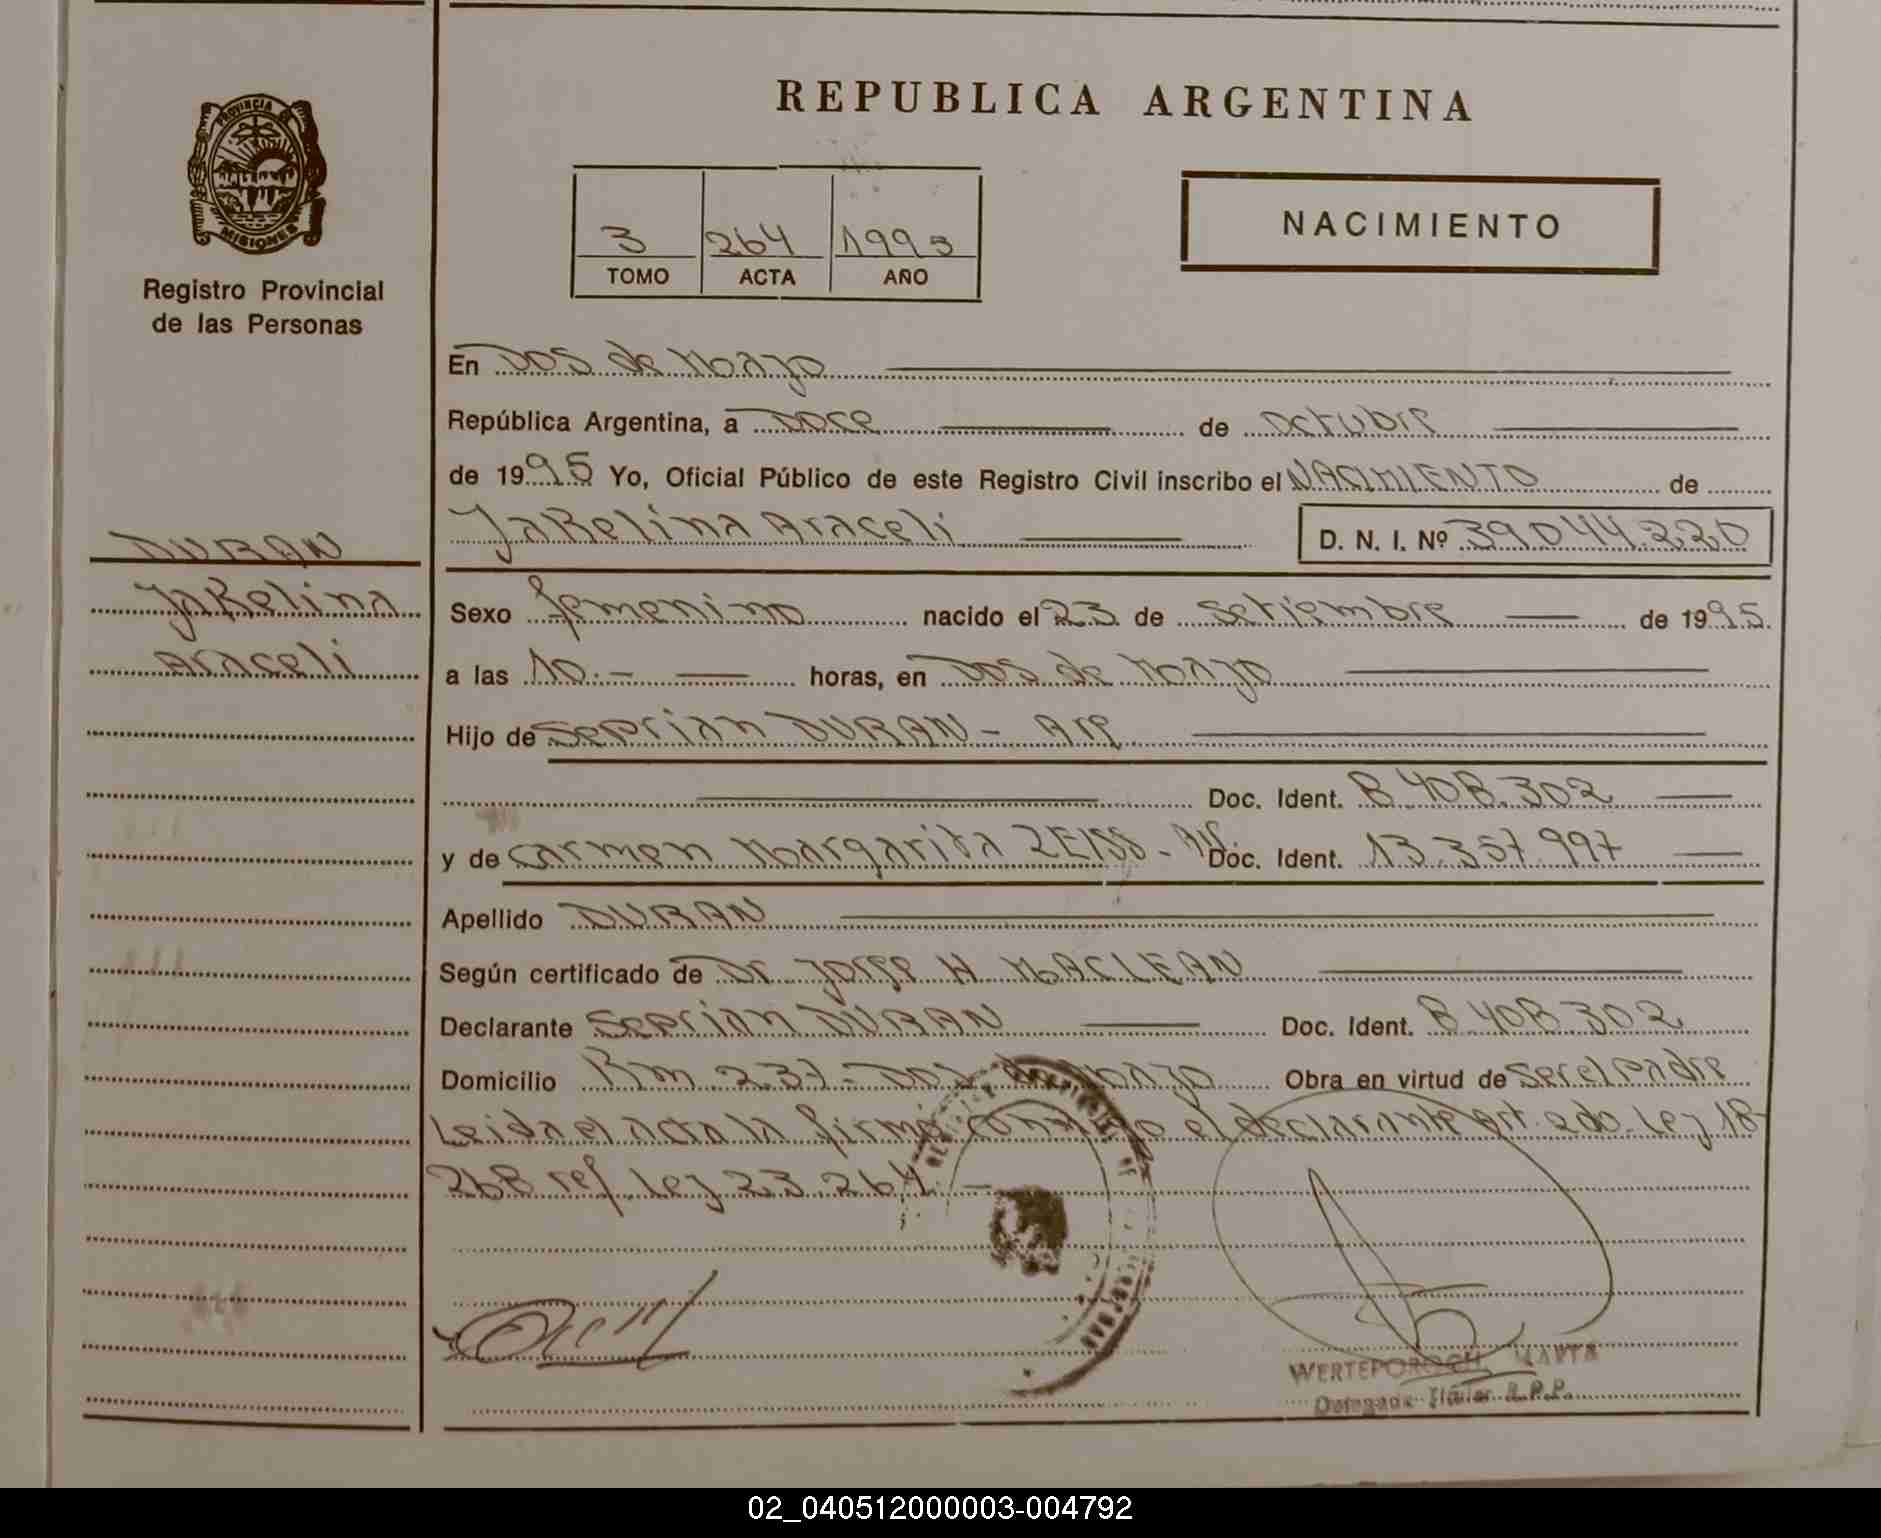 REPUBLICA ARGENTINA
PROVINCIA DE MISIONES
Registro Provincial
de las Personas
3 264 1995
TOMO ACTA AÑO
NACIMIENTO
En Dos de Mayo
República Argentina, a Doce de octubre
de 1995 Yo, Oficial Público de este Registro Civil inscribo el NACIMIENTO de
YaKelina Araceli D. N. I. Nº 39044.220
DURAN
YaKelina
Araceli
Sexo femenino nacido el 23 de setiembre de 1995
a las 10.- horas, en Dos de Mayo
Hijo de Seprian DURAN - Arg
Doc. Ident. 8.408.302
y de Carmen Margarita ZEISS - Doc. Ident. 13.357.997
Apellido DURAN
Según certificado de Dr Jorge H MACLEAN
Declarante Seprian DURAN Doc. Ident. 8.408.302
Domicilio Km 237 - Dos de Mayo Obra en virtud de ser el padre
Leida el acta la firmó conmigo el declarante art. 2do. Ley 18-
268 ref. Ley 23.264.-
WERTEPOROCH, MARTA
Delegada Titular R.P.P.
02_040512000003-004792